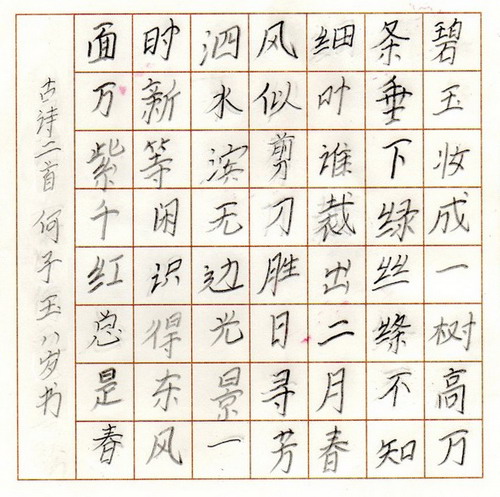 碧玉妆成一树高万
条垂下绿丝绦不知
细叶谁裁出二月春
风似剪刀胜日寻芳
泗水滨无边光景一
时新等闲识得东风
面万紫千红总是春
古诗二首 何子玉 八岁书